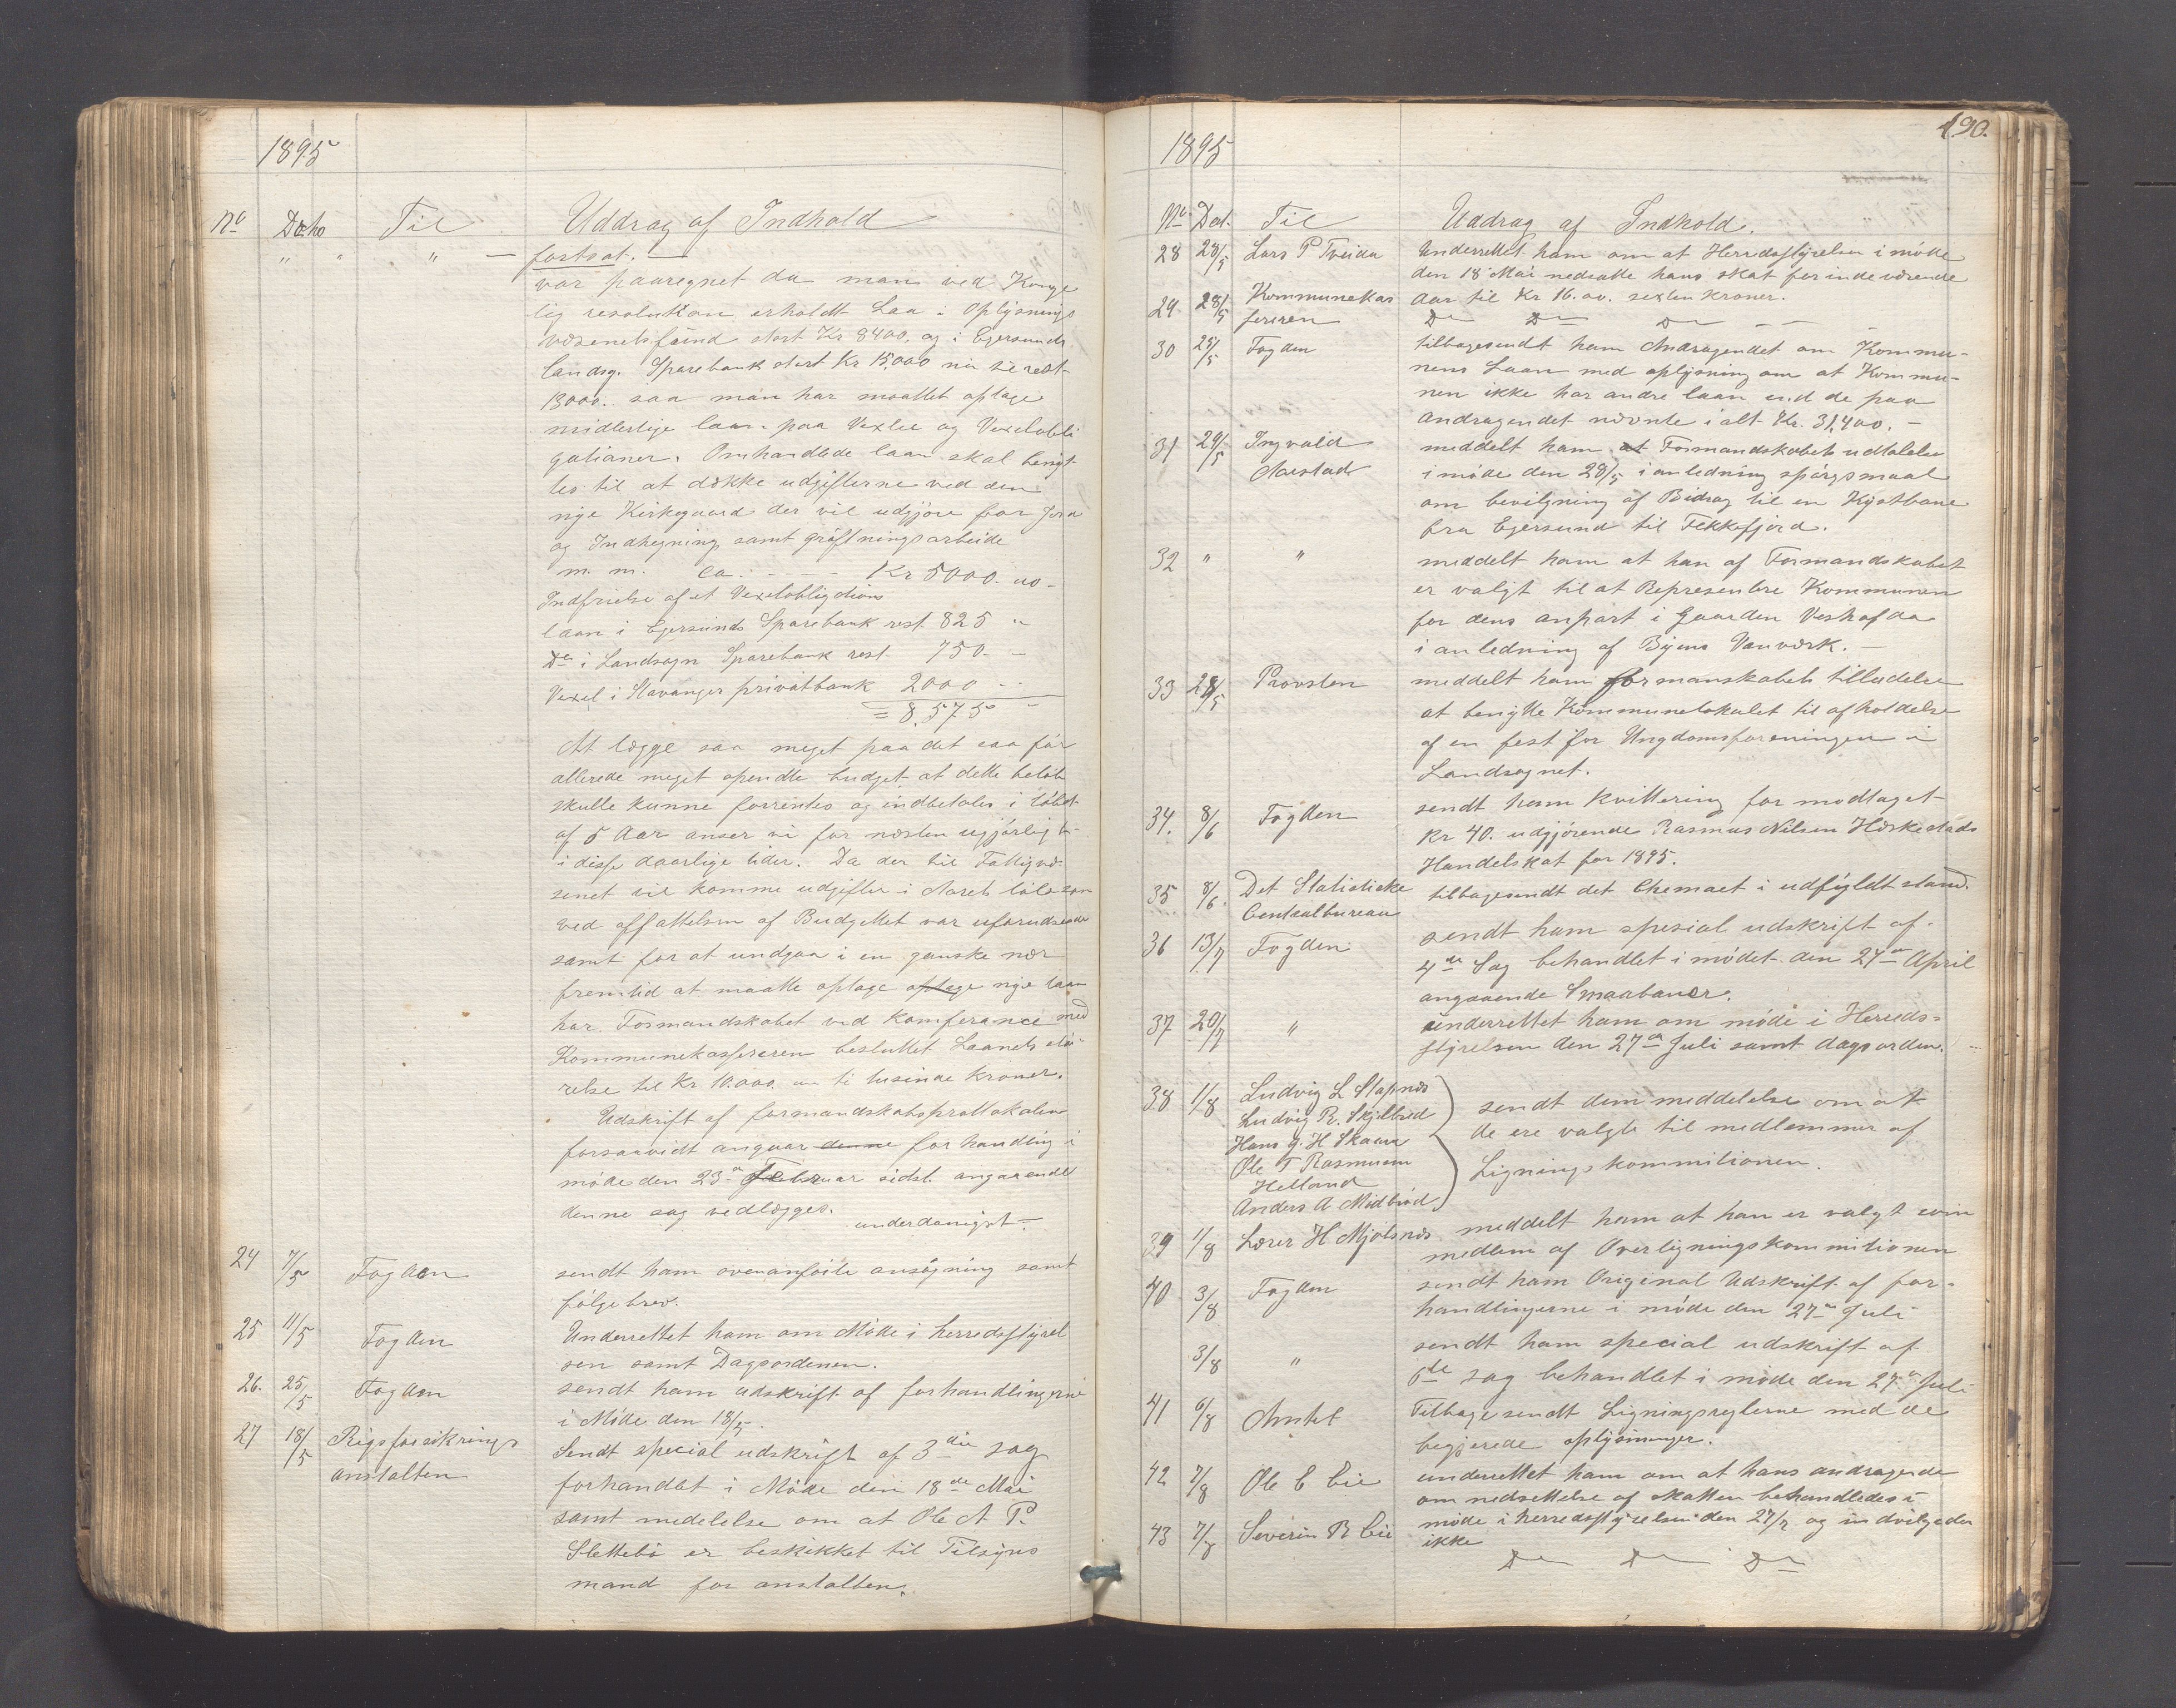 1895
No Dato Til Uddrag af Indhold
" " " — fortsat. —
var paaregnet da man ved Konge
lig resolution erholdt Laan i Oplysnings
væsenets fond stort Kr 8400, og i Egersunds
landsg. Sparebank stort Kr 15,000 nu til rest
13000. saa man har maattet optage
midlertige laan paa Vexler og Vexelobli
gationer. Omhandlede laan skal benyt
tes til at dække udgifterne ved den
nye Kirkegaard der vil udgjøre for Jord
og Indhegning samt grøftningsarbeide
m. m. ca. - - - - Kr 5000. oo -
Indfrielse af et Vexelobligations
laan i Egersunds Sparebank rest 825 "
Do i Landsogn Sparebank rest 750. -
Vexel i Stavanger privatbank 2000 - -
= 8,575 -
At lægge saa meget paa det saa før
allerede meget spendte budget at dette beløb
skulle kunne forrentes og indbetales i løbet
af 5 Aar anser vi for næsten ugjørligt
i disse daarlige tider. Da der til Fattigvæ
senet vil komme udgifter i Aarets løb som
ved affattelsen af Budgettet var uforudseede
samt for at undgaa i en ganske nær
fremtid at maatte optage optage nye laan
har Formandskabet ved konferance med
Kommunekassereren besluttet Laanets stø-
relse til Kr. 10.000. ti tusinde kroner.
Udskrift af formandskabsprottokolen
forsaavidt angaar denne forhandling i
møde den 23de Februar sidst. angaaende
denne sag vedlægges.
underdanigst —
24 7/5 Fogden sendt ham ovenanførte ansøgning samt
følgebrev.
25 11/5 Fogden Underrettet ham om Møde i herredsstyrel
sen samt Dagsordenen.
26. 25/5 Fogden sendt ham udskrift af forhandlingerne
i Møde den 18/5.
27 18/5 Rigsforsikrings Sendt special udskrift af 3die sag
anstalten forhandlet i Møde den 18de Mai
samt medelelse om at Ole A P.
Slettebø er beskikket til Tilsyns
mand for anstalten.
190.
1895
No Dat. Til Uddrag af Indhold.
28 28/5 Lars P Tveida Underrettet ham om at Herredsstyrelsen i møde
den 18 Mai nedsatte hans skat for indeværende
Aar til Kr 16.oo. sexten Kroner.
29 28/5 Kommunekas
sereren Do Do Do — —
30 29/5 Fogden tilbagesendt ham Andragendet om Kommu-
nens Laan med oplysning om at Kommu-
nen ikke har andre laan end de paa
Andragendet nævnte ialt Kr. 31,400. -
31 29/5 Ingvald meddelt ham at Formandskabets udtalelse
Aarstad i møde den 28/5 i anledning spørgsmaal
om bevilgning af Bidrag til en Kystbane
fra Egersund til Flekkefjord.
32 " " meddelt ham at han af Formandskabet
er valgt til at Representere Kommunen
for dens anpart i Gaarden
i anledning af Byens Vanværk. —
33 28/5 Provsten meddelt ham formanskabets tilladelse
at benytte Kommunelokalet til afholdelse
af en fest for Ungdomsforeningen i
Landsognet.
34. 8/6 Fogden sendt ham kvittering for modtaget
Kr 40. udgjørende Rasmus Nilsen Hæskestads
Handelskat for 1895.
35 8/6. Det Statistiske tilbagesendt det Chemaet i udfyldt stand.
Centralbureau
36 13/7 Fogden sendt ham spesial udskrift af
4de Sag behandlet i mødet den 27de April
angaaende Smaabaner.
37 20/7 " underrettet ham om møde i Hereds=
styrelsen den 27de Juli samt dagsorden.
38 1/8 Ludvig L Stapnæs
Ludvig R. Skjelbred sendt dem meddelelse om at
Hans G. H Skaara de ere valgte til medlemmer af
Ole T Rasmusen Ligningskommitionen.
Helland
Anders A Midbrød
39 1/8 Lærer H Mjølsnæs meddelt ham at han er valgt som
medlem af Overligningskommitionen
40 3/8 Fogden sendt ham Original Udskrift af for-
handlingerne i møde den 27de Juli
3/8 " sendt ham special udskrift af
6te sag behandlet i møde den 27de Juli
41 6/8 Amtet Tilbagesendt Ligningsreglerne med de
begjerede oplysninger.
42 7/8 Ole C Eie underrettet ham om at hans andragende
om nedsettelse af skatten behandledes i
møde i herredsstyrelsen den 27/7 og indvilgedes
ikke
43 7/8 Severin R Eie Do Do Do